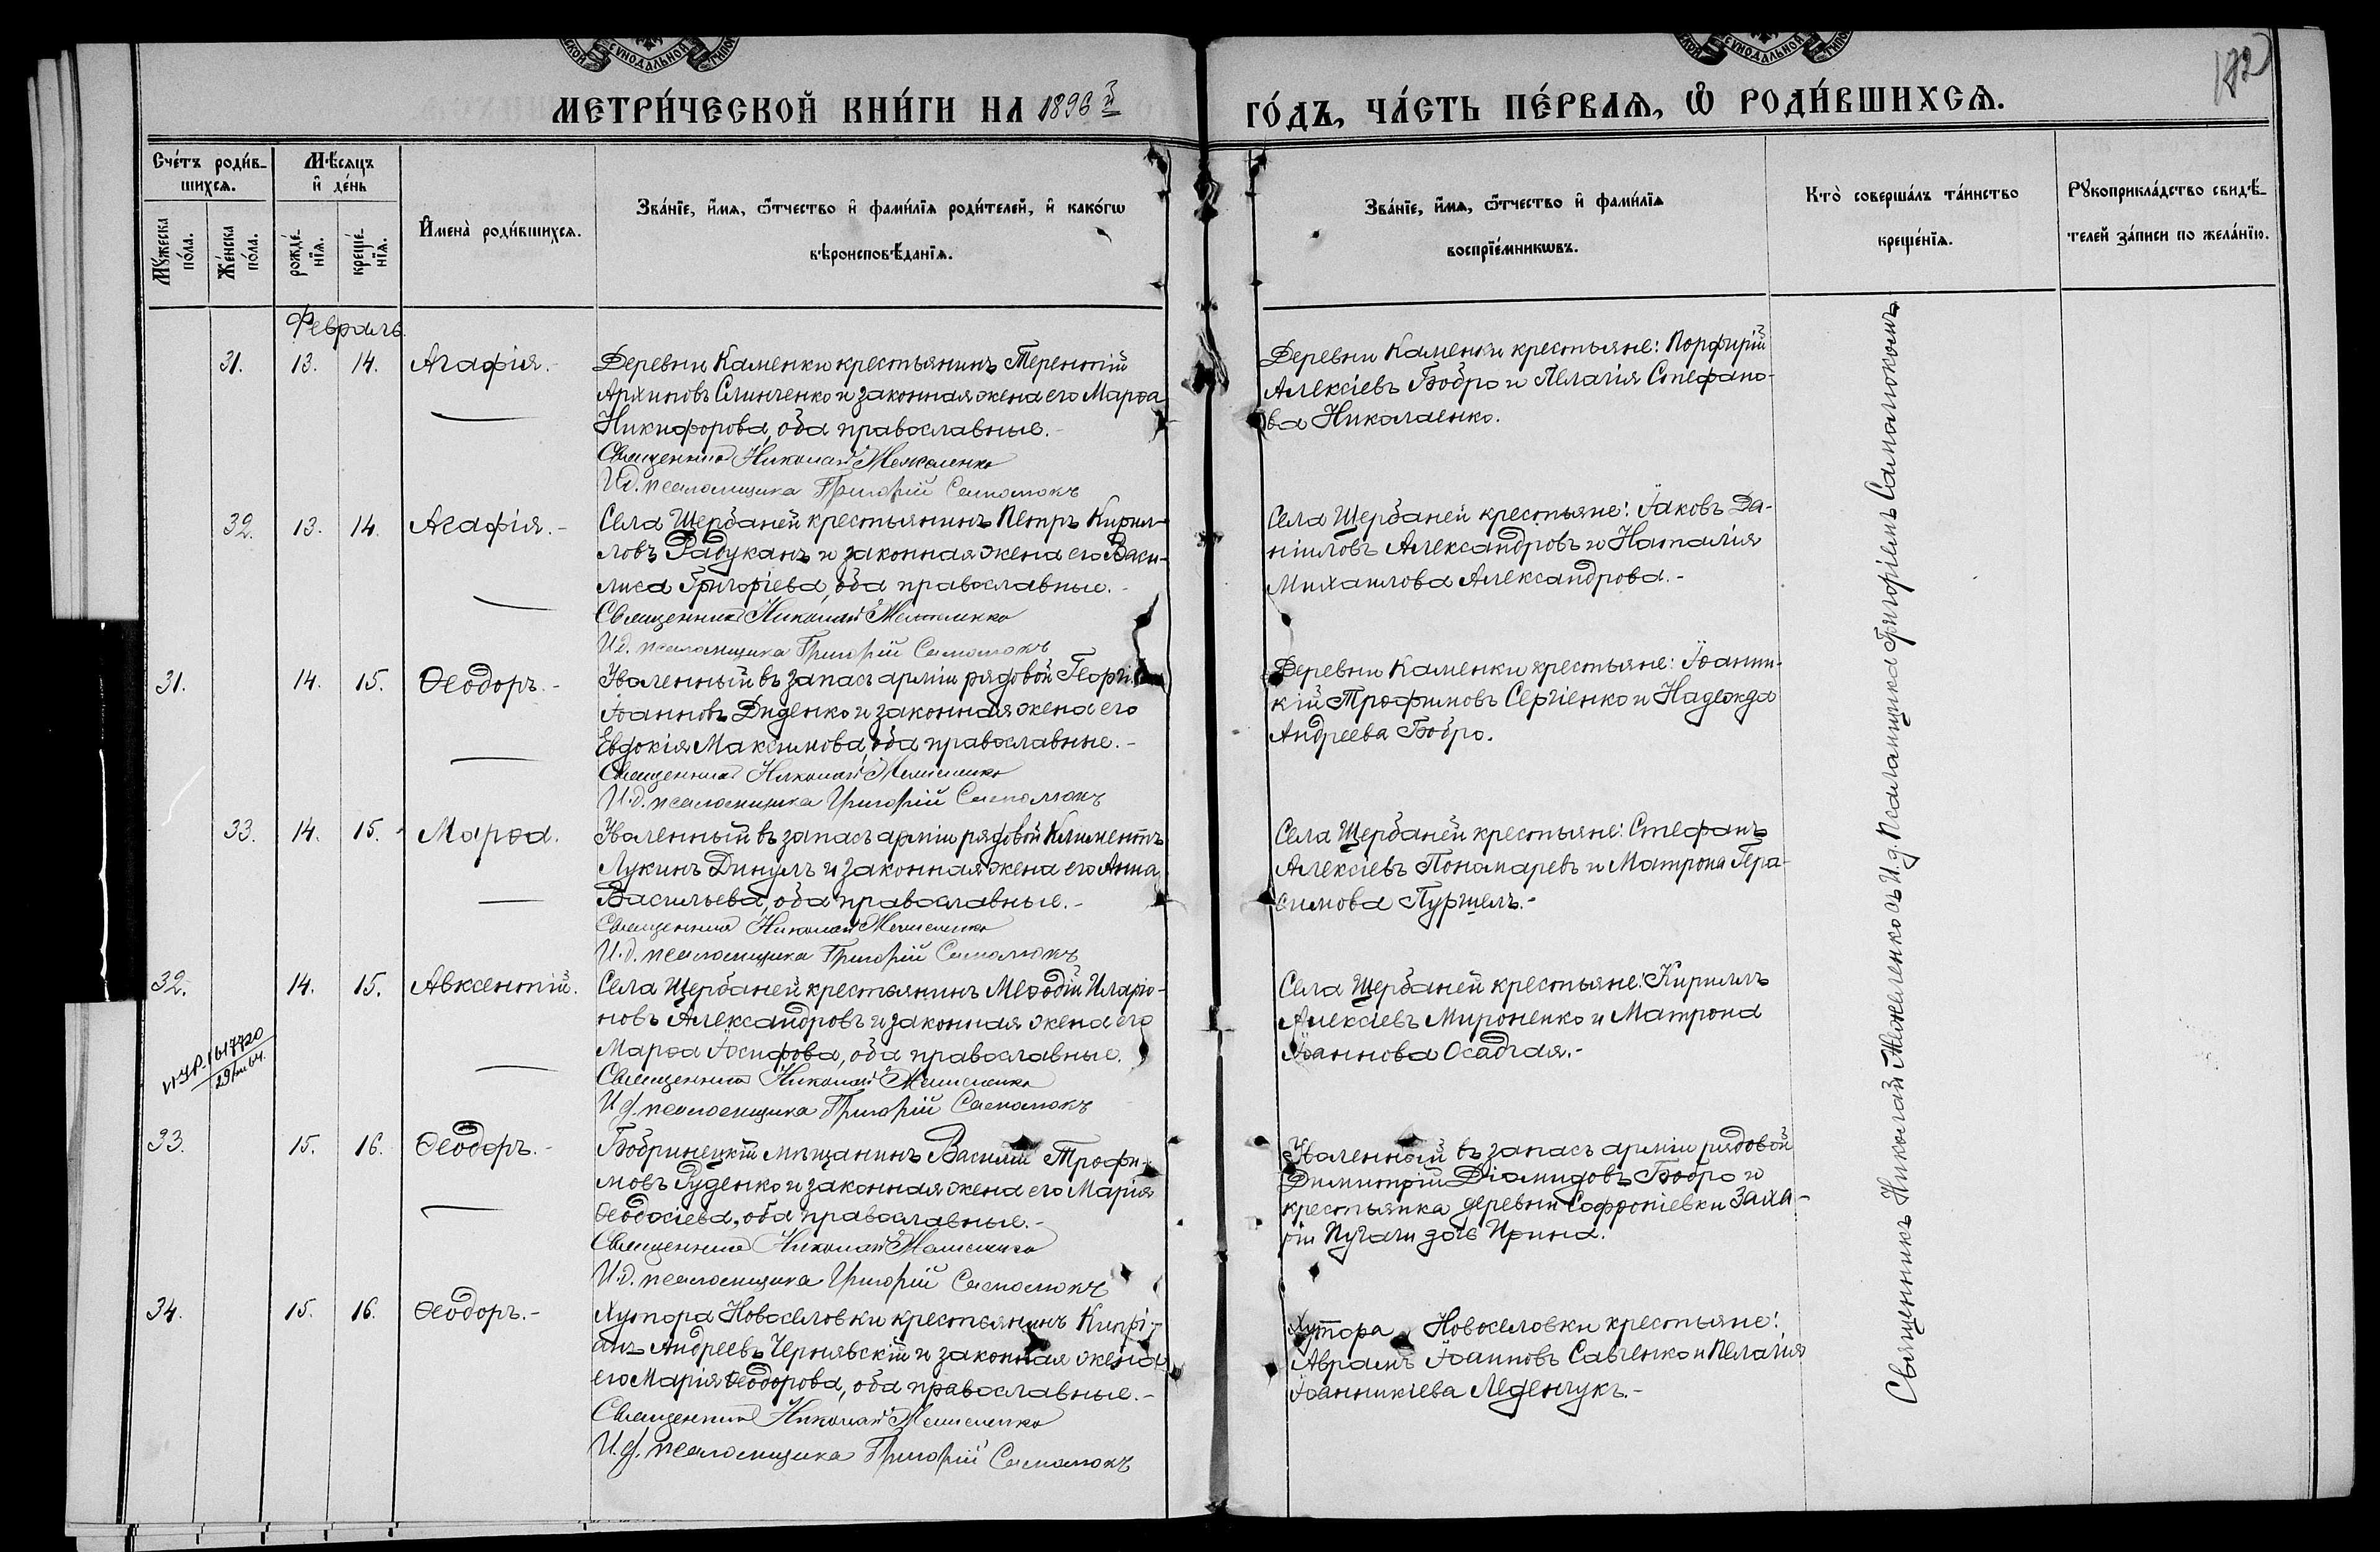 МЕТРИ́ЧЕСКОЙ КНИ́ГИ НА 1896й
ГО́ДЪ, ЧА́СТЬ ПЕ́РВАѦ, Ѡ҆ РОДИ́ВШИХСѦ.
Сче́тъ роди́в-
шихсѧ.
Мѣ́сѧцъ
и҆ де́нь
Мꙋ́жеска
по́ла.
Же́нска
по́ла.
рожде́-
нїѧ.
креще́-
нїѧ.
И҆мена̀ роди́вшихсѧ.
Зва́нїе, и҆́мѧ, ѻ҆́тчество и҆ фами́лїѧ роди́телей, и҆ како́гѡ
вѣроисповѣ́данїѧ.
Зва́нїе, и҆́мѧ, ѻ҆́тчество и҆ фами́лїѧ
воспрїе́мникѡвъ.
Кто̀ соверша́лъ та́инство
креще́нїѧ.
Рꙋкоприкла́дство свидѣ́-
телей за́писи по жела́нїю.
Февраль.
31. 13. 14. Агафія.-
Деревни Каменки крестьянинъ Терентій
Архиповъ Слинченко и законная жена его Марѳа
Никифорова, оба православные.-
Священникъ Николай
И.д. псаломщика Григорій Самолюкъ
Деревни Каменки крестьяне: Порфирій
Алексіевъ Бобро и Пелагія Стефано-
ва Николаенко.
32. 13. 14. Агафія.-
Села Щербаней крестьянинъ Петръ Кирил-
ловъ Радуканъ и законная жена его Васи-
лиса Григоріева, оба православные.-
Священникъ Николай
И.д. псаломщика Григорій Самолюкъ
Села Щербаней крестьяне: Іаковъ Да-
ніиловъ Александровъ и Наталія
Михаилова Александрова.-
31. 14. 15. Ѳеодоръ.-
Уволенный въ запасъ арміи рядовой
Іоанновъ Диденко и законная жена его
Евдокія Максимова, оба православные.-
Священникъ Николай
И.д. псаломщика Григорій Самолюкъ
Деревни Каменки крестьяне: Іоанни-
кій Трофимовъ Сергіенко и Надежда
Андреева Бобро.
33. 14. 15. Марѳа.
Уволенный въ запасъ арміи рядовой Климентъ
Лукинъ Динулъ и законная жена его Анна
Васильева, оба православные.-
Священникъ Николай
И.д. псаломщика Григорій Самолюкъ
Села Щербаней крестьяне: Стефанъ
Алексіевъ Пономаревъ и Матрона Гера-
симова Пуршелъ.-
32. 14. 15. Авксентій.
Села Щербаней крестьянинъ Меѳодій Иларіо-
новъ Александровъ и законная жена его
Марѳа Іосифова, оба православные.
Священникъ Николай
И.д. псаломщика Григорій Самолюкъ
Села Щербаней крестьяне: Кириллъ
Алексіевъ Мироненко и Матрона
Іоаннова Осадчая.-
33. 15. 16. Ѳеодоръ.-
Бобринецкій мѣщанинъ Василій Трофи-
мовъ Руденко и законная жена его Марія
Ѳеодосіева, оба православные.-
Священникъ Николай
И.д. псаломщика Григорій Самолюкъ
Уволенный въ запасъ арміи рядовой
Димитрій Діомидовъ Бобро и
крестьянка деревни Софроніевки Заха-
рія Пугачи дочь Ирина.
34. 15. 16. Ѳеодоръ.-
Хутора Новоселовки крестьянинъ Кипрі-
анъ Андреевъ Чернявскій и законная жена
его Марія Ѳеодорова, оба православные.-
Священникъ Николай
И.д. псаломщика Григорій Самолюкъ
Хутора Новоселовки крестьяне:
Аврамъ Іоанновъ Савченко и Пелагія
Іоанникіева Леденчукъ.-
Священникъ Николай съ И.д. Псаломщика Григоріемъ Самолюкомъ